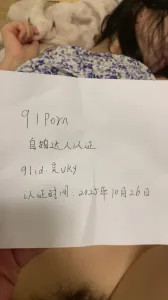 91Porn
自拍达人认证
91id:昊vky
认证时间:2025年10月26日